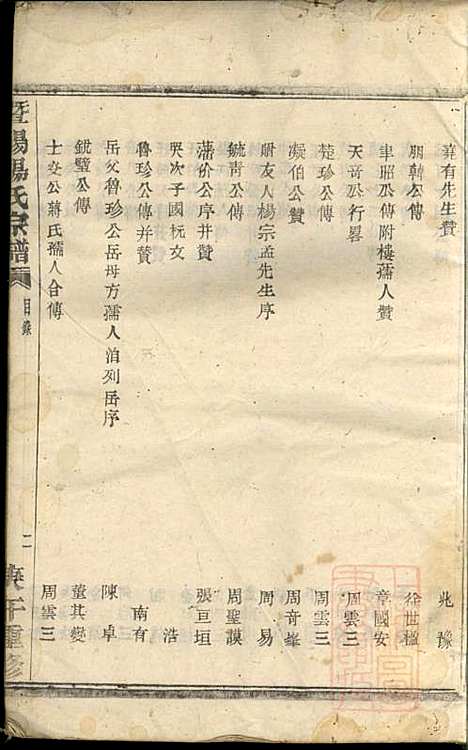 堯有先生贊 兆豫
朋韓公傳 徐世楹
聿昭公傳附樓孺人贊 章國安
天音公行畧 周雲三
楚珍公傳 周雲三
凝伯公贊 周奇峯
贈友人楊宗孟先生序 周易
毓青公傳 周聖謨
藩价公序并贊 張亘垣
哭次子國杬文 浩
魯珍公傳并贊 南有
岳父魯珍公岳母方孺人洎列岳序 陳卓
銳璧公傳 董其燮
士交公蔣氏孺人合傳 周雲三
暨陽楊氏宗譜
目錄
二
庚午重修